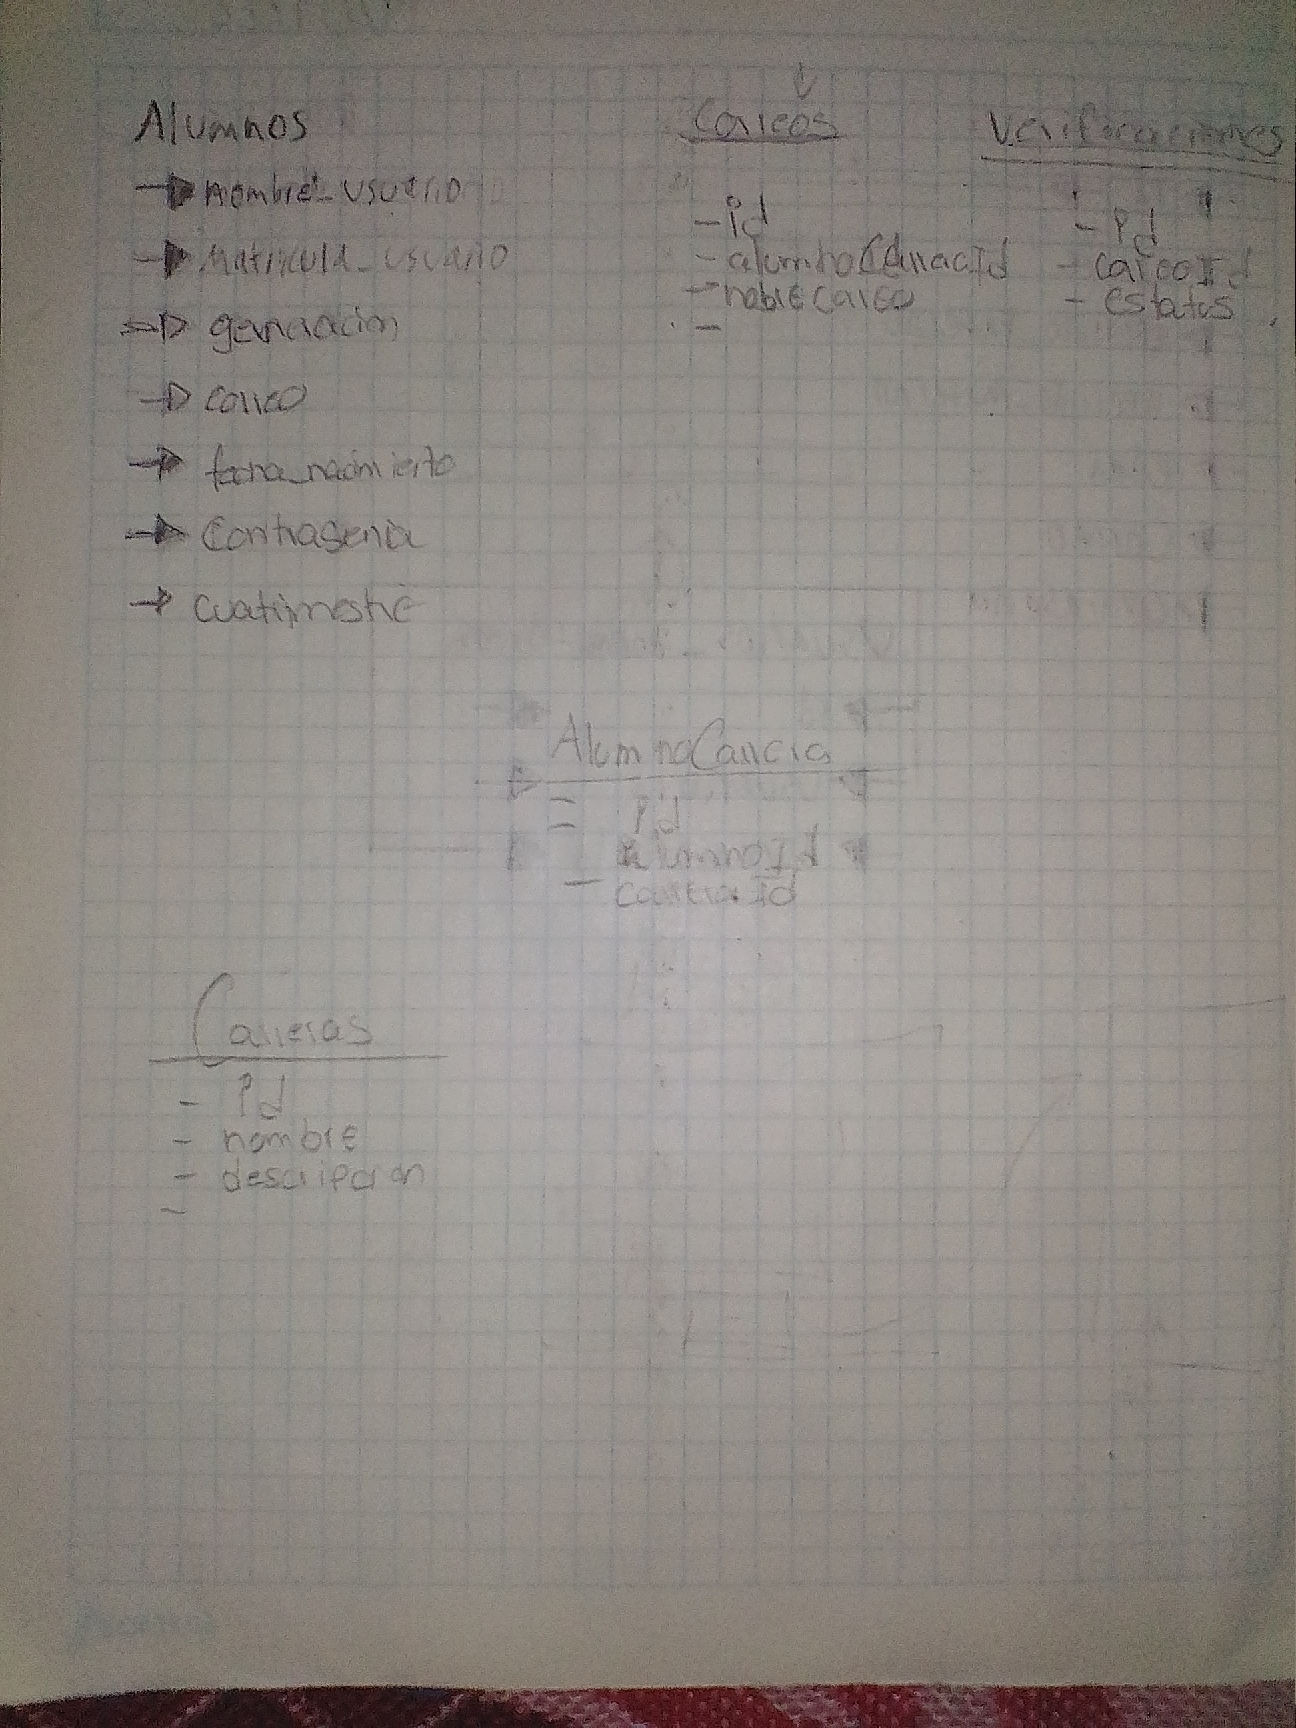 Alumnos
nombre_usuario
Matricula_usuario
generacion
correo
fecha_nacimiento
Contrasenia
cuatrimestre
Careos
- id
- alumnoCarreraId
- nobre careo
-
Verificaciones
- id
- careoId
- estatus
AlumnoCarrera
- id
- alumnoId
- carreraId
Carreras
- id
- nombre
- descripcion
-